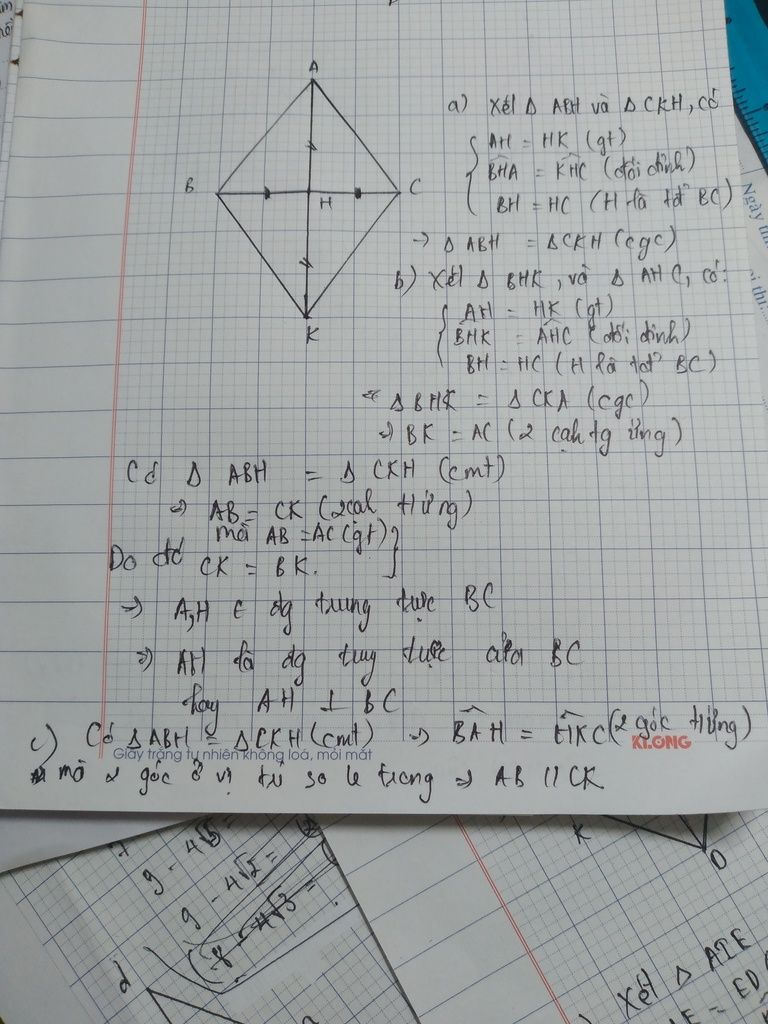 A
B
H
C
K
a) Xét Δ ABH và Δ CKH, có
AH = HK (gt)
BHA = KHC (đối đỉnh)
BH = HC (H là tđ BC)
→ Δ ABH = Δ CKH (cgc)
b) Xét Δ BHK, và Δ AHC, có:
AH = HK (gt)
BHK = AHC (đối đỉnh)
BH = HC (H là tđ BC)
⇒ Δ BHK = Δ CKA (cgc)
⇒ BK = AC (2 cạh tg ứng)
Có Δ ABH = Δ CKH (cmt)
⇒ AB = CK (2 cah tứng)
mà AB = AC (gt)
Do đó CK = BK.
⇒ A,H ∈ đg trung trực BC
⇒ AH là đg trug trực của BC
hay AH ⊥ BC
c) Có Δ ABH = Δ CKH (cmt) ⇒ BAH = HKC (2 góc tứng)
KLONG
Giấy trắng tự nhiên không loá, mỏi mắt
mà 2 góc ở vị trí so le trong ⇒ AB // CK
Ngày th
K
D
9 - 4√5 =
9 - 4√2 =
8 - 4√3 =
d
Xét Δ AIE
= ED